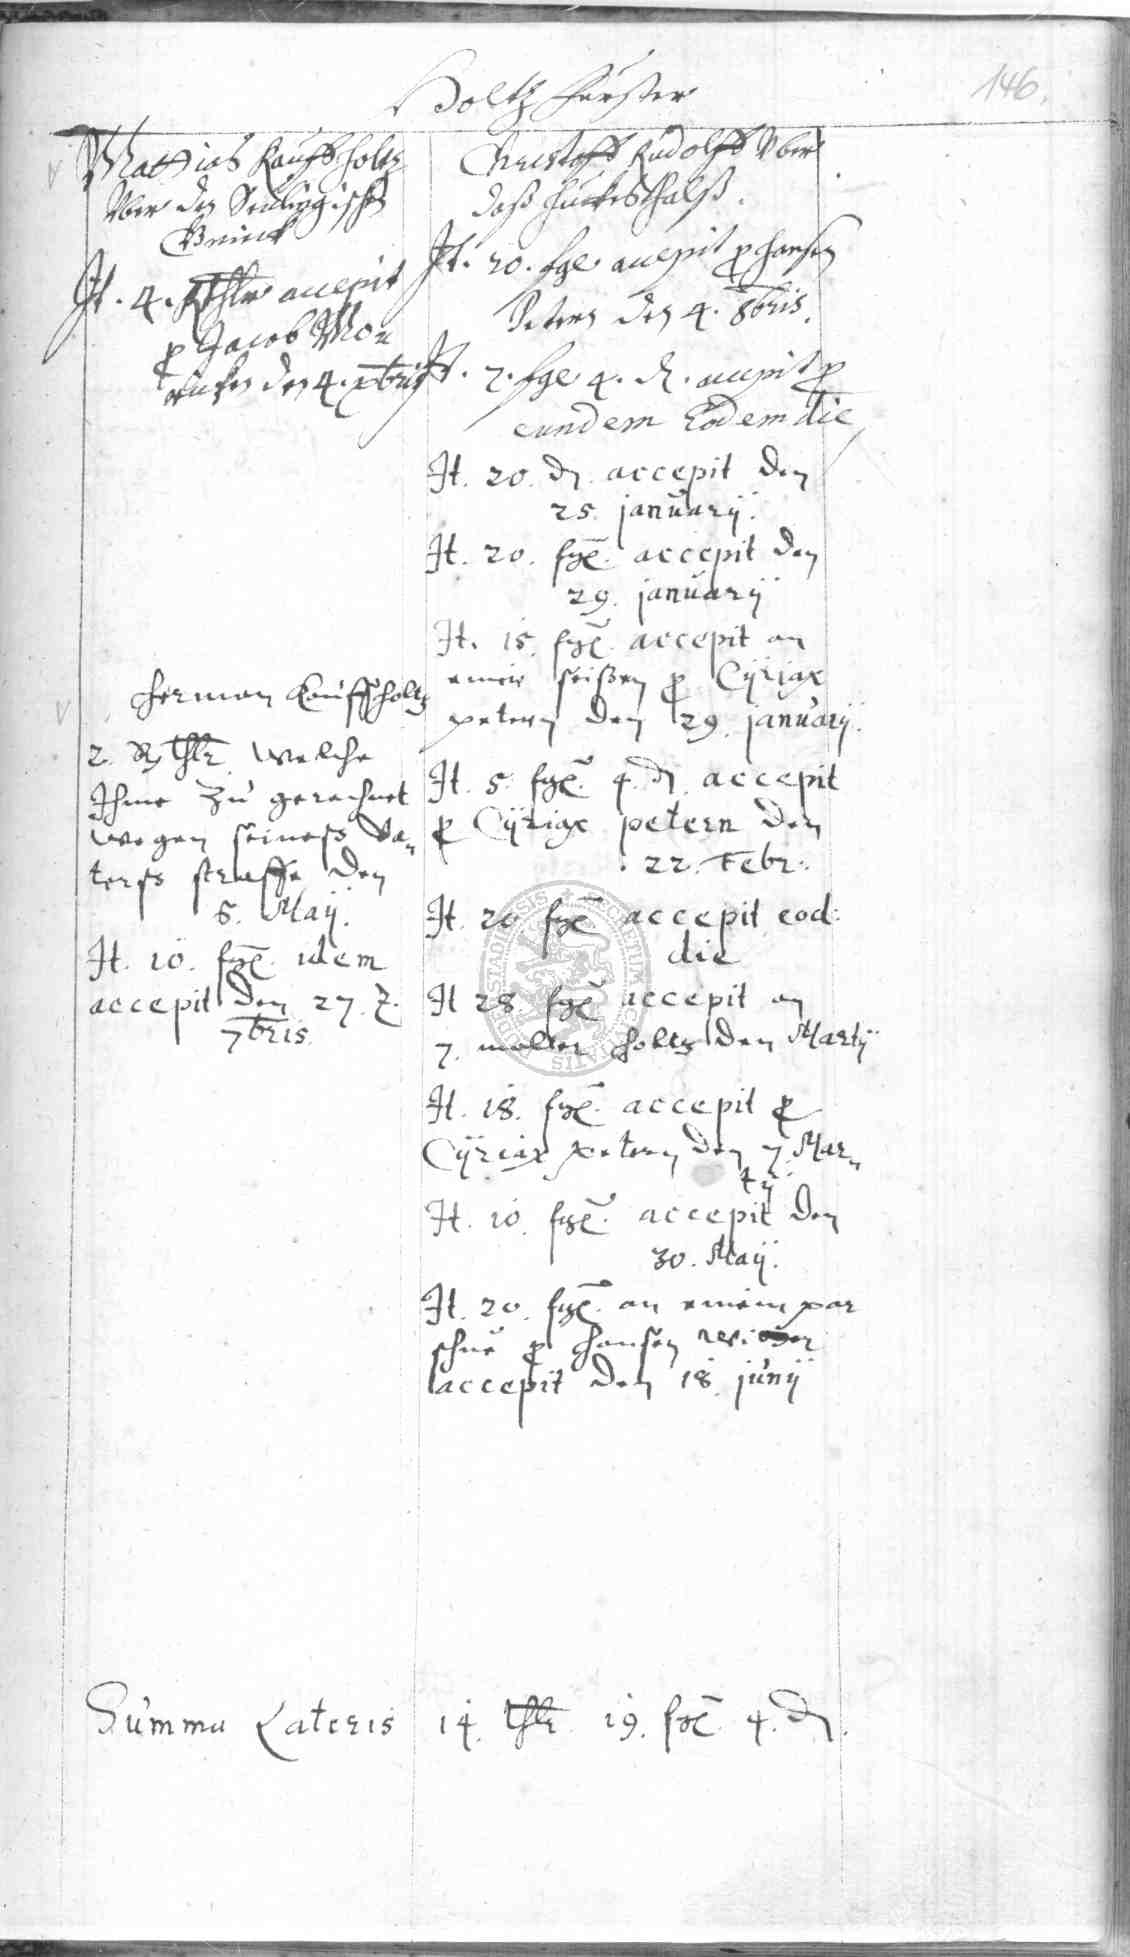 146.
Holtz Furster
Mathias Kauffholtz
Vber den
It. 4. Rthlr accepit
p Jacob Mon
den 4. xbris
Herman Kauffholtz
2. Rthlr. welche
Ihme zu gerechnet
wegen seiness Va„
terss straffe den
5. Maij.
It. 10. fgl. idem
accepit den 27.
7bris.
Christoff Rudolff Vber
dass
It. 20. fgl accepit p Hansen
Petern den 4. 8bris.
It. 2. fgl 4. d. accepit p
eundem Eodem die
It. 20. d. accepit den
25. januarij.
It. 20. fgl. accepit den
29. januarij
It. 15. fgl. accepit an
einer seissen p Cÿriax
petern den 29. januarij.
It. 5. fgl. 4. d. accepit
p Cÿriax petern den
22. Febr.
It. 20 fgl accepit eod:
die
It 28. fgl accepit an
7. malter Holtz den Martij
It. 18. fgl. accepit p
Cÿriax petern den 7. Mar„
tij
It. 10. fgl. accepit den
30. Maij.
It. 20. fgl. an einem par
schue p Hansen
accepit den 18. junij
Summa Lateris 14. thlr. 19. fgl 4. d.